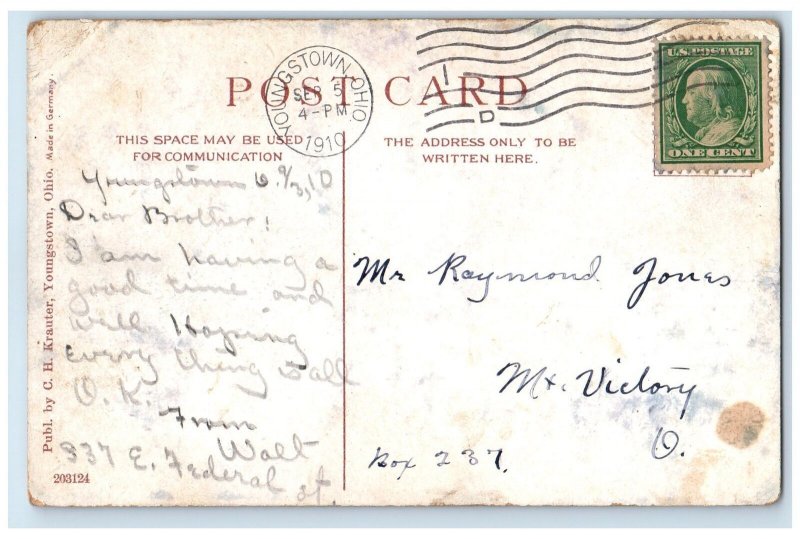 POST CARD
YOUNGSTOWN, OHIO
SEP 5
4-PM
1910
1
D
U.S. POSTAGE
ONE CENT
THIS SPACE MAY BE USED
FOR COMMUNICATION
THE ADDRESS ONLY TO BE
WRITTEN HERE.
Youngstown O. 9/3, 10
Dear Brother!
I am having a
good time and
well. Hoping
every thing is all
O. K.
From
Walt
337 E. Federal st.
Mr Raymond Jones
Mt. Victory
O.
Box 237.
Publ. by C. H. Krauter, Youngstown, Ohio. Made in Germany.
203124